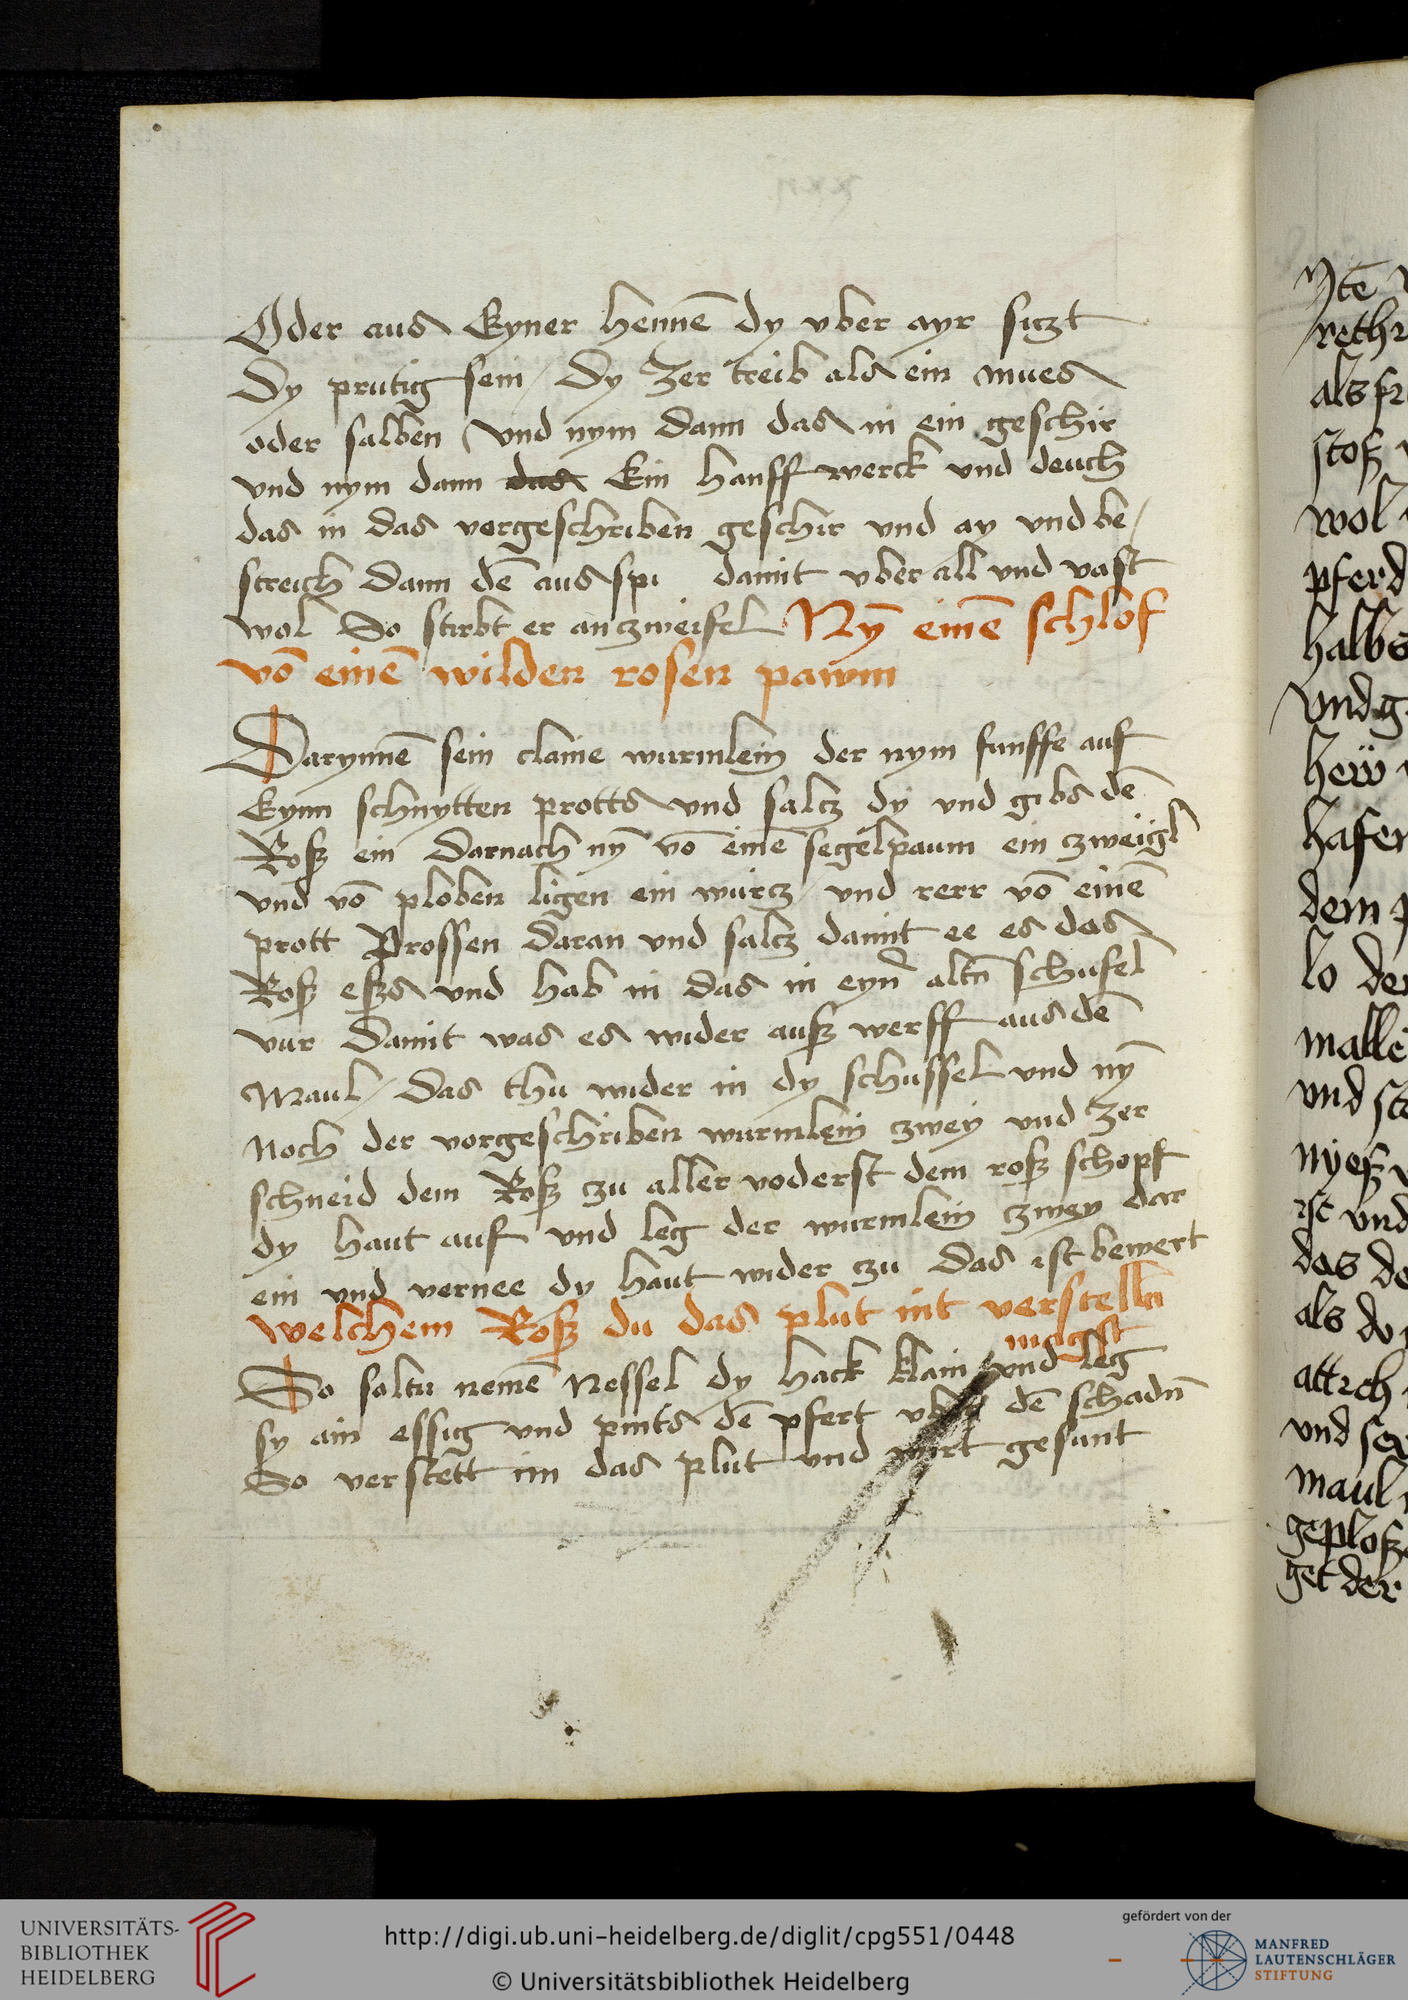 Oder aus Eyner hennē dy vber ayr siczt
Dy prutig sein / Dy zer treib als ein mues
oder salben / Vnd nym dann das in ein geschir
vnd nym dann das Ein hanff werck vnd deuch
das in das vorgeschriben geschir vnd ay vnd be/
streich dann dē aus spi damit vber all vnd vast
wol So stirbt er an czweifel Nȳ einē schlof
vō einē wilden rosen pawm
Darynnē sein claine wurmlein der nym funffe auf
Eynn schnytten protts vnd salcz dy vnd gibs dē
Roß ein Darnach nȳ vō einē segelpaum ein zweigl
vnd vō ploben ligen ein wurcz / vnd rerr vō einē
prott Prossen daran vnd salcz damit ee es das
Roß eßs vnd hab in das in eyn̄ altn̄ schusel
vur Damit was es wider auß werff aus dē
Maul / Das thu wider in dy schussel vnd nȳ
Noch der vorgeschriben wurmlein zwey vnd zer
schneid dem Roß zu aller voderst dem roß schopf
dy haut auf vnd leg der wurmlein zwey dar
ein vnd vernee dy haut wider zu Das ist bewert
Welchem Roß du das plut nit verstelln
magst
So soltu nemē Nessel dy hack klain vnd leg
sy ain essig vnd pints dē pfert vber dē schadn̄
So verstett im das plut vnd wirt gesunt
Itē
als
stoß
wol
pferd
halbs
vnd
hew
hafer
dem
lo der
malle
vnd
ist vnd
das
als do
vnd
maul
get der
UNIVERSITÄTS-
BIBLIOTHEK
HEIDELBERG
http://digi.ub.uni-heidelberg.de/diglit/cpg551/0448
© Universitätsbibliothek Heidelberg
gefördert von der
MANFRED
LAUTENSCHLÄGER
STIFTUNG